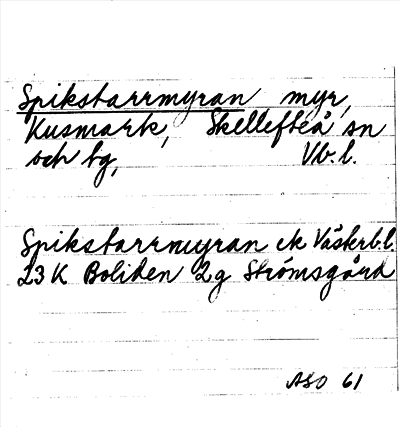 Spikstarrmyran, myr,
Kusmark, Skellefteå sn
och tg, Vb. l.
Spikstarrmyran ek Västerb.l.
23 K Boliden 2g Strömsgård
ASO 61